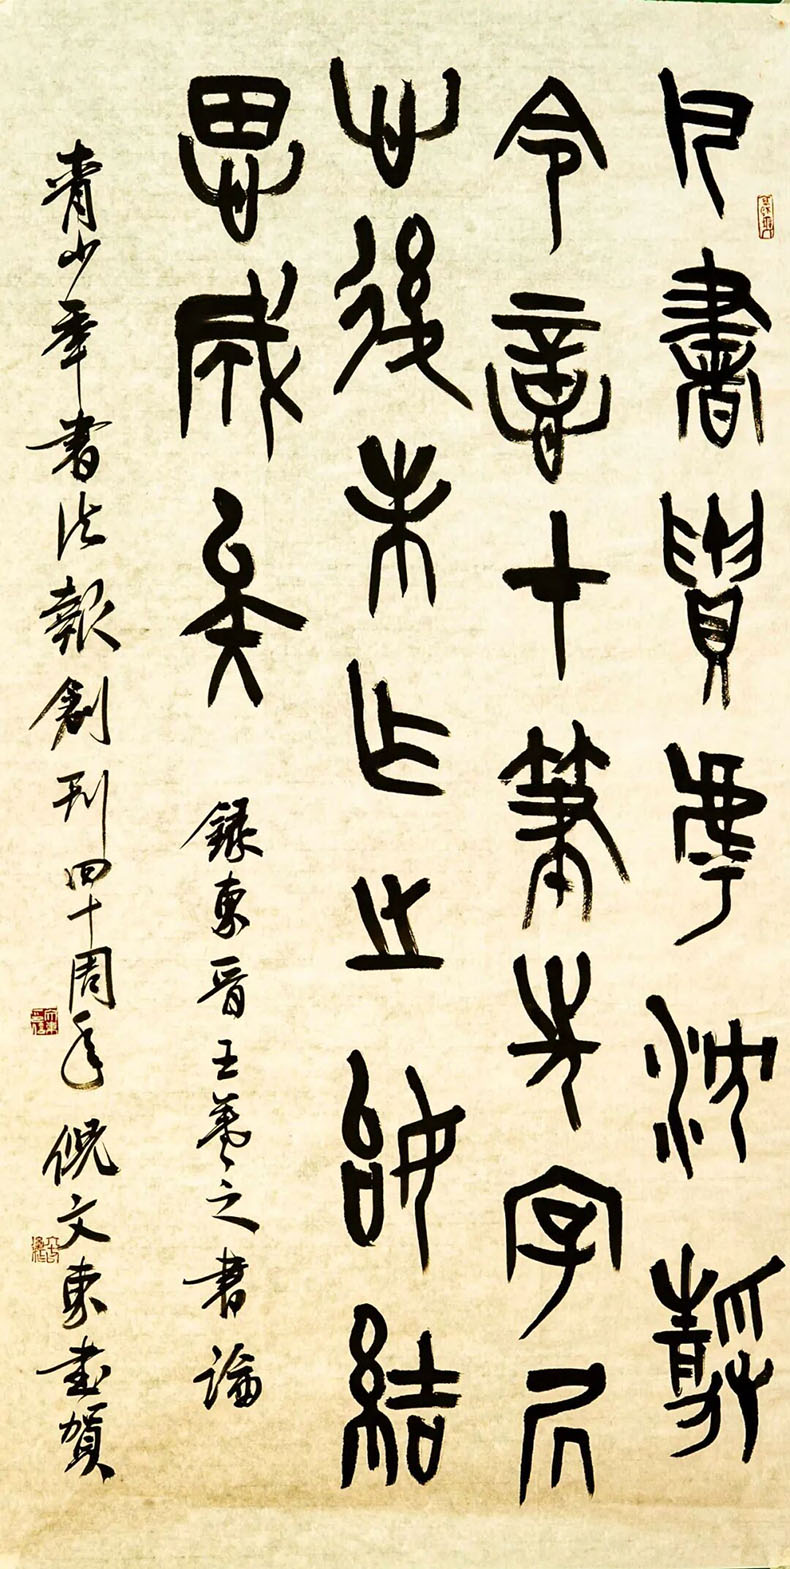 凡書貴乎沈靜
令意在筆先字居
心後未作之始結
思成矣 錄東晉王羲之書論
青少年書法報創刊四十周年 倪文東書賀